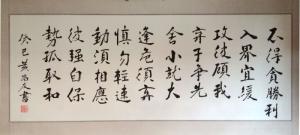 不得貪勝利
入界宜緩
攻彼顧我
弃子争先
舍小就大
逢危須弃
慎勿輕速
動須相應
彼強自保
勢孤取和
癸巳 黄 友書